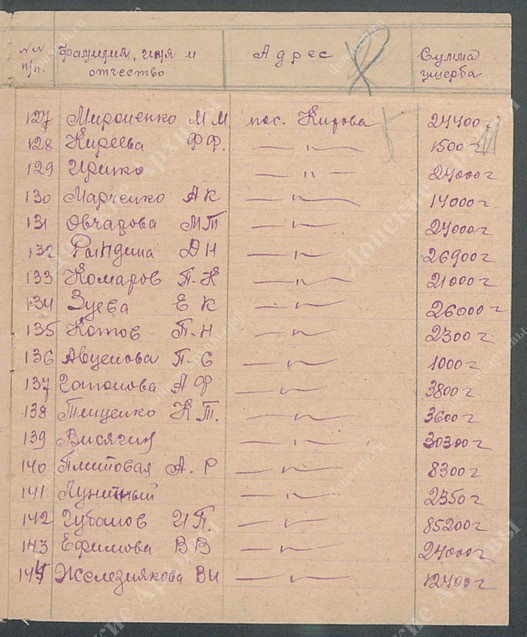 №№ п/п. Фамилия, имя и отчество Адрес Сумма ущерба
127 Мироненко М М пос. Кирова 24400 г
128 Киреева Ф Ф. — " — 1500 г
129 — " — 24000 г
130 Марченко А К — " — 14000 г
131 Овчарова М Т — " — 24000 г
132 Д Н — " — 26900 г
133 Комаров П. К — " — 21000 г
134 Зуева Е К — " — 26000 г
135 Котов П. Н — " — 2300 г
136 П. С — " — 1000 г
137 А Ф — " — 3800 г
138 Тищенко К Т. — " — 3600 г
139 — " — 30300 г
140 А. Р — " — 8300 г
141 — " — 2350 г
142 И П. — " — 85200 г
143 Ефимова В В — " — 24000 г
144 Железнякова В И — " — 12400 г